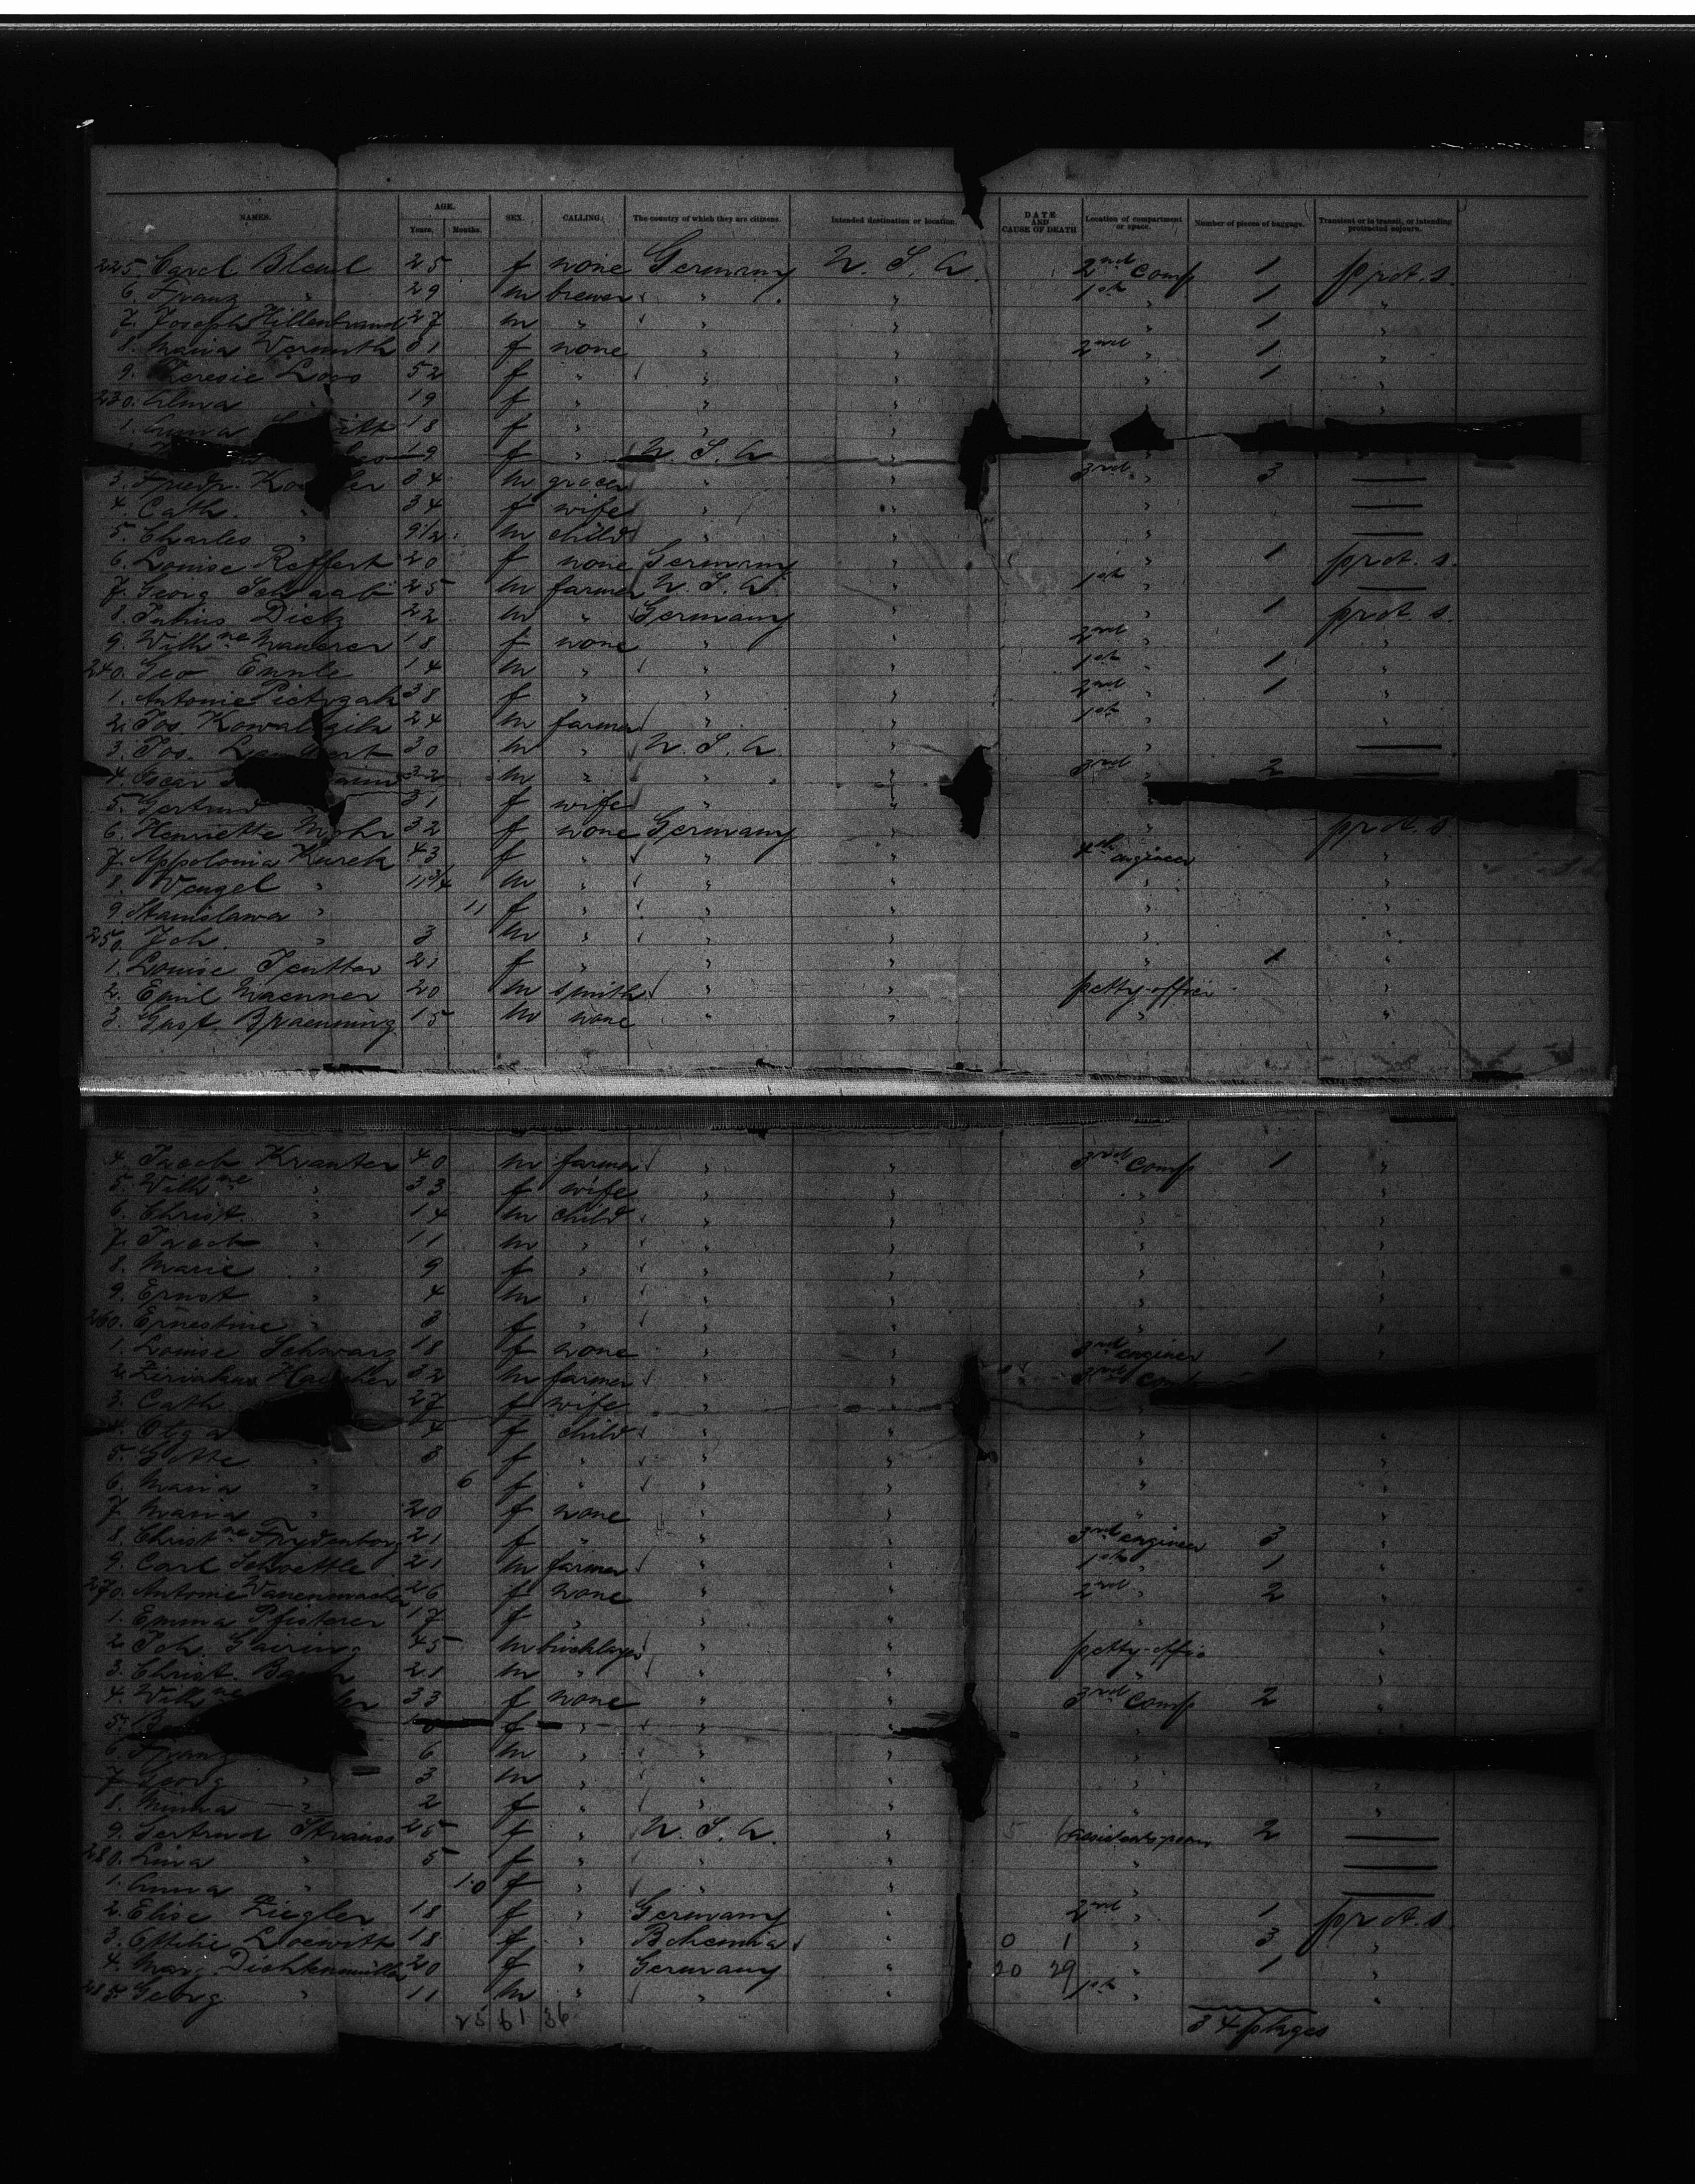 NAMES. AGE. Years. Months. SEX. CALLING. The country of which they are citizens. Intended destination or location. DATE AND CAUSE OF DEATH Location of compartment or space. Number of pieces of baggage. Transient or in transit, or intending protracted sojourn.
225. Carol 25 f none Germany U. S. A. 2nd Comp 1 prot. s.
6. Franz " 29 m brewer " " 1st " 1 "
7. Joseph Hillenbrand 27 m " " " " 1 "
8. Maria f none " " 2nd " 1 "
9. Theresie Loos 52 f " " " " 1 "
230. Alma " 19 f " " " " "
1. Anna 18 f " " "
19 f " U. S. A. " "
3. Friedr. 34 m grocer " " 3rd " 3 —
4. Cath. " 34 f wife " " " —
5. Charles " 9 1/2 m child " " " —
6. Louise Reffert 20 f none Germany " " 1 prot. s.
7. Georg Schaab 25 m farmer U. S. A. " 1st " —
8. Julius Dietz 22 m " Germany " " 1 prot. s.
9. Wilhne Maurer 18 f none " " 2nd " "
240. Geo 14 m " " " 1st " 1 "
1. Antonie 38 f " " " 2nd " 1 "
2. Jos. 24 m farmer " " 1st "
3. Jos. 30 m " U. S. A. " " —
4. Oscar 32 m " " " 3rd " 2 —
5. Gertrud 31 f wife " "
6. Henriette Mohr 32 f none Germany " " prot. s.
7. Appolonia Kurek 43 f " " " 4th engineer "
8. " 11 3/4 m " " " " "
9. Stanislawa " 11 f " " " " "
250. Joh. " 3 m " " " " "
1. Louise 21 f " " " " 1 "
2. Emil Maenner 20 m smith " " petty-officer "
3. Gust. Braenning 15 m none " " " "
4. Jacob Krauter 40 m farmer " " 3rd Comp 1 "
5. Wilhne " 33 f wife " " " "
6. Christ. " 14 m child " " " "
7. Jacob " 11 m " " " " "
8. Marie " 9 f " " " " "
9. Ernst " 4 m " " " " "
260. Ernestine " 3 f " " " " "
1. Louise Schwarz 18 f none " " 3rd engineer 1 "
2. 32 m farmer " " 3rd
3. Cath. 27 f wife " " "
4. Olga 4 f child " " " "
5. " 3 f " " " " "
6. Maria " 6 f " " " " "
7. Maria " 20 f none " " " "
8. Christne Frydenborg 21 f " " " 3rd engineer 3 "
9. Carl Schoettle 21 m farmer " " 1st " 1 "
270. Antonie Wanenmacher 26 f none " " 2nd " 2 "
1. Emma Pfisterer 17 f " " " " "
2. Joh. Gairing 45 m bricklayer " " petty-offic "
3. Christ. 21 m " " " " "
4. Wilhne 33 f none " " 3rd Comp 2 "
5. f " " " "
6. Franz 6 m " " " "
7. Georg " 3 m " " " " "
8. Minna " 2 f " " " " "
9. Gertrud Strauss 25 f " U. S. A. " 2 —
280. Lina " 5 f " " " " —
1. Anna " 10 f " " " " —
2. Elise Ziegler 18 f " Germany " 2nd " 1 prot. s.
3. Ottilie Loewith 18 f " Bohemia " 0 1 " 3 "
4. Marg. 20 f " Germany " 20 29 " 1 "
285. Georg " 11 m " " " 1st " "
25 61 36 34 pkges